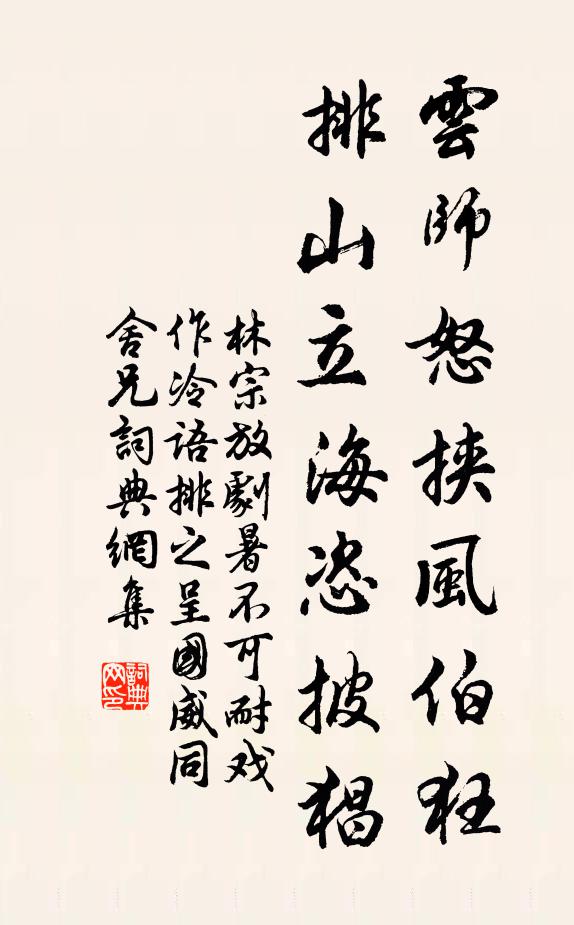 雲師怒挾風伯狂
排山立海恣披猖
林宗放劇暑不可耐戏
作冷語排之呈國威同
舍兄詞典網集
詞典
网印